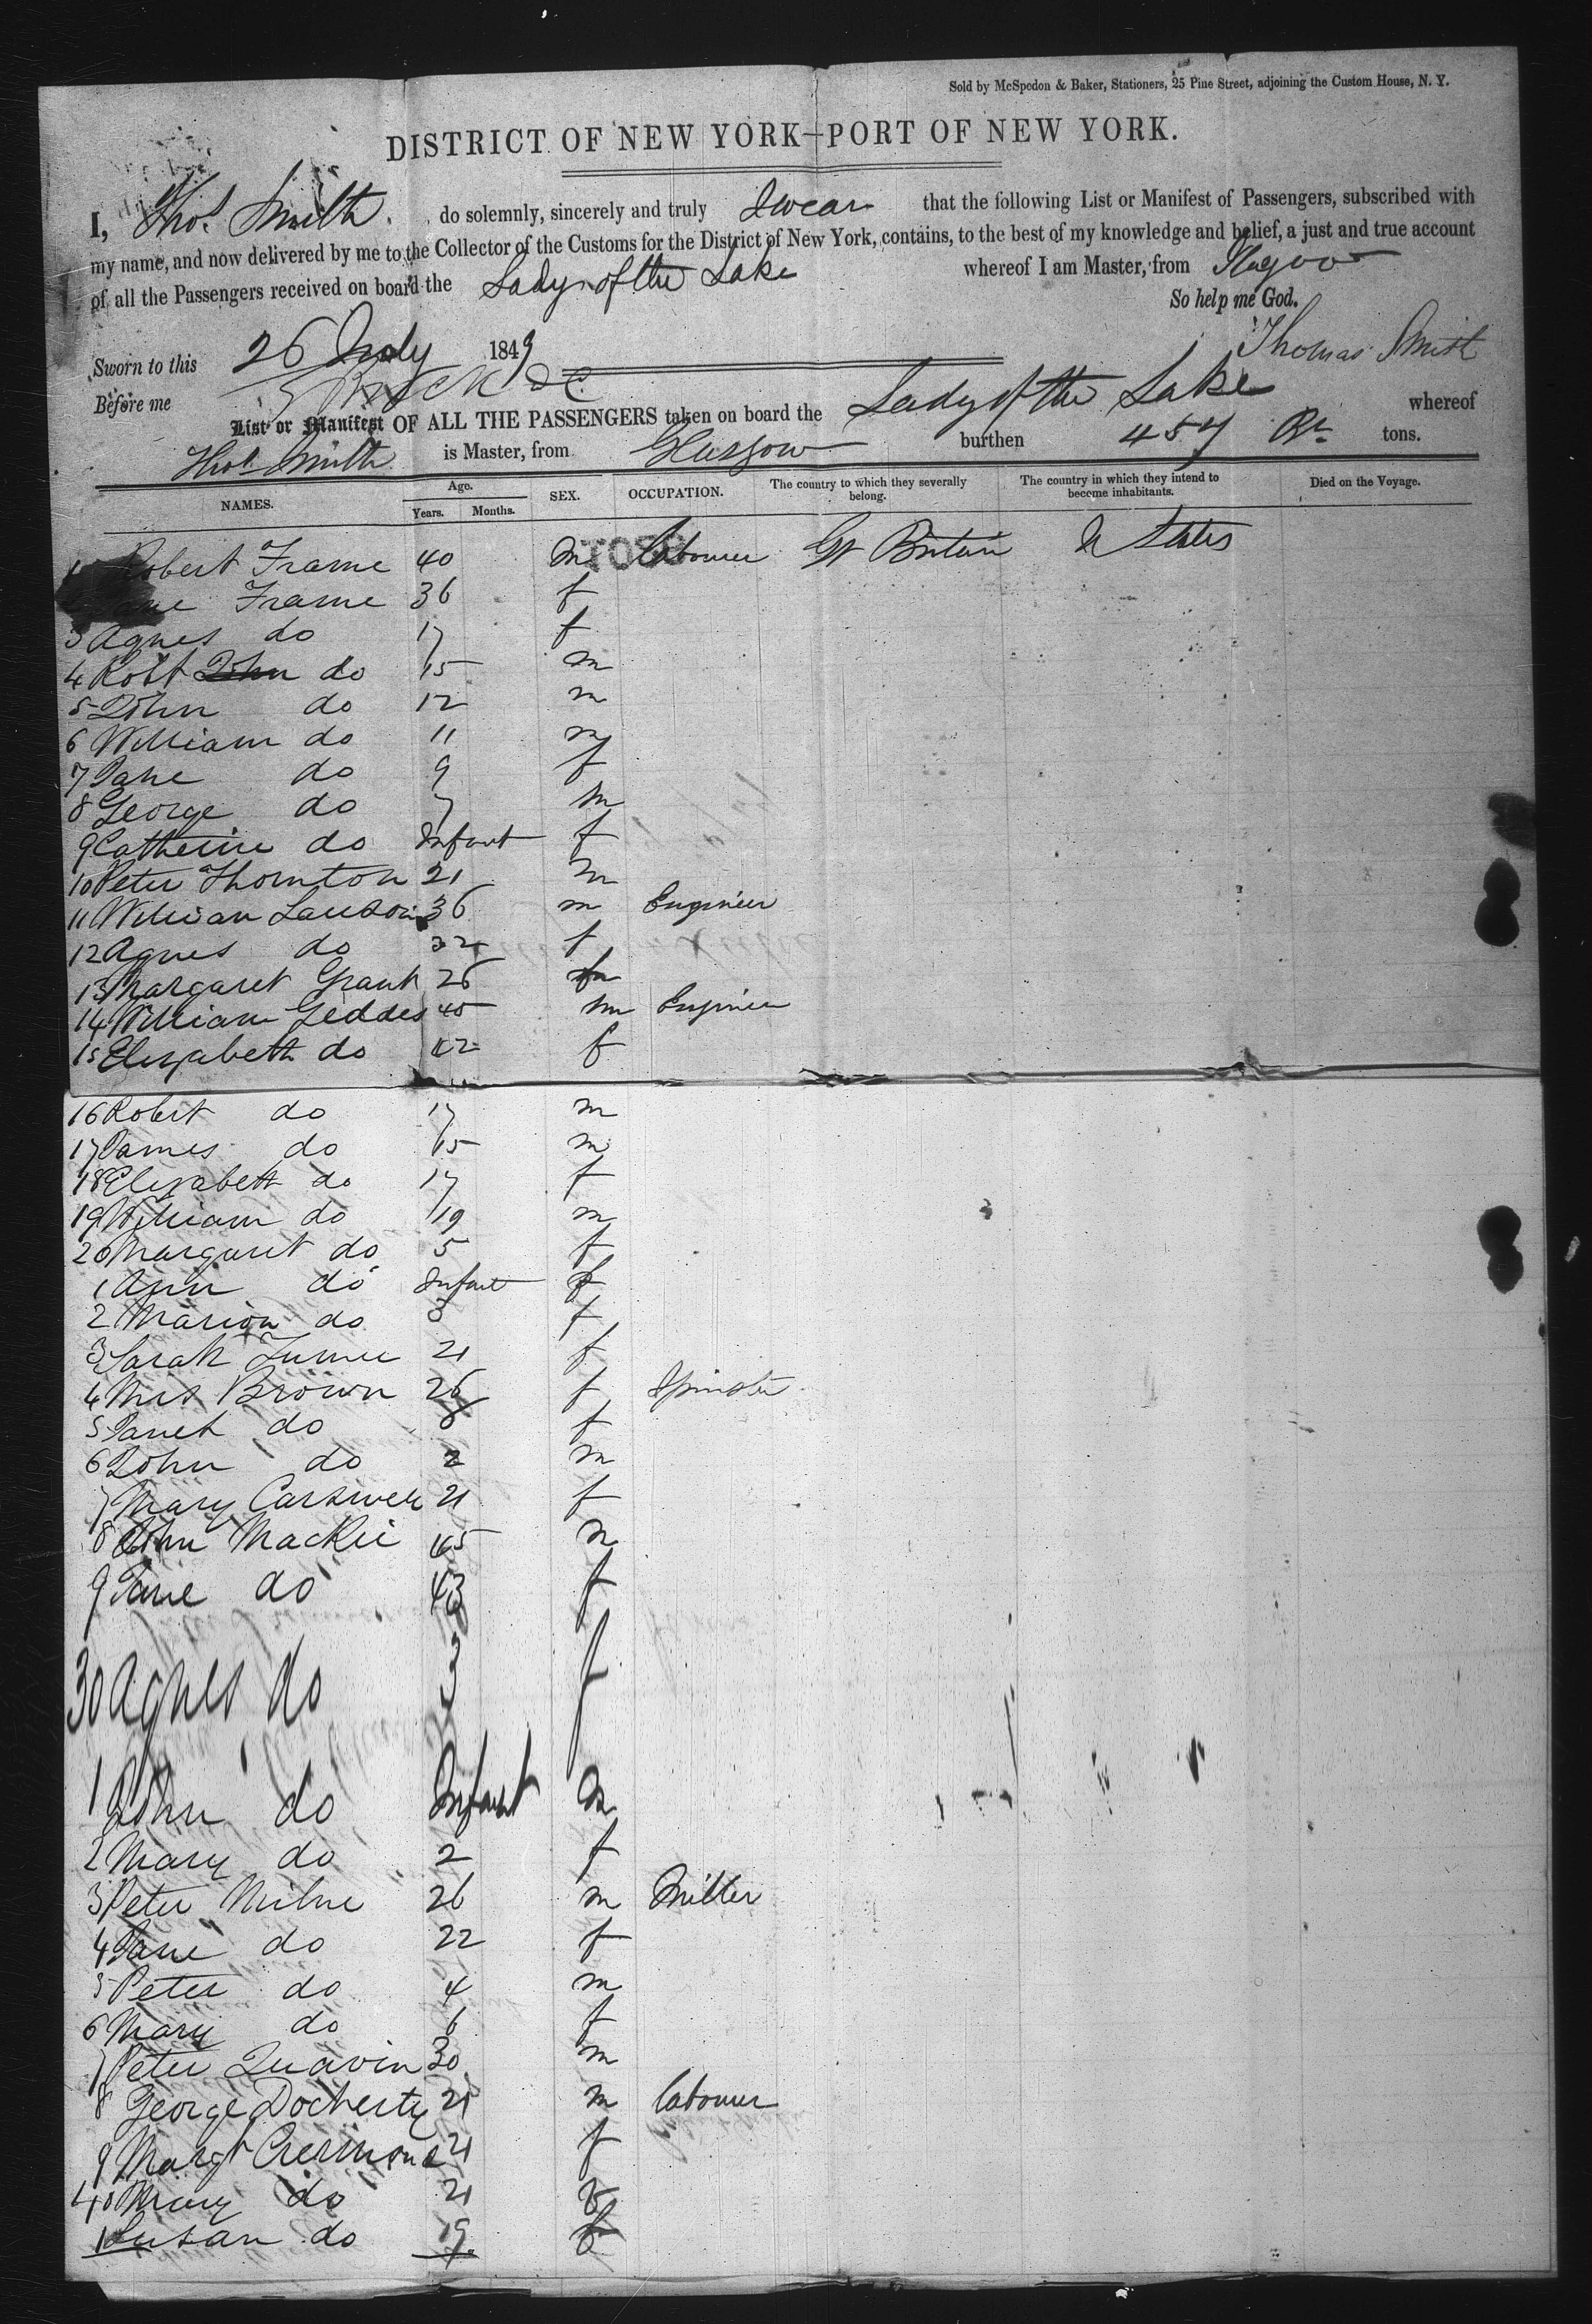 Sold by McSpedon & Baker, Stationers, 25 Pine Street, adjoining the Custom House, N. Y.
DISTRICT OF NEW YORK—PORT OF NEW YORK.
I, Thos. Smith do solemnly, sincerely and truly Swear that the following List or Manifest of Passengers, subscribed with
my name, and now delivered by me to the Collector of the Customs for the District of New York, contains, to the best of my knowledge and belief, a just and true account
of all the Passengers received on board the Lady of the Lake whereof I am Master, from
So help me God.
Sworn to this 26 July 1849 Thomas Smith
Before me
List or Manifest OF ALL THE PASSENGERS taken on board the Lady of the Lake whereof
Thos Smith is Master, from Glasgow burthen 457 tons.
NAMES. Age. Years. Months. SEX. OCCUPATION. The country to which they severally belong. The country in which they intend to become inhabitants. Died on the Voyage.
Robert Frame 40 m Labourer Gt Britain U States
Frame 36 f
3 Agnes do 17 f
4 Robt John do 15 m
5 John do 12 m
6 William do 11 m
7 Jane do 9 f
8 George do 7 m
9 Catherine do Infant f
10 Peter Thornton 21 m
11 William 36 m Engineer
12 Agnes do 32 f
13 Margaret Grant 26
14 William Geddes 45 m Engineer
15 Elizabeth do 42 f
16 Robert do 17 m
17 James do 15 m
18 Elizabeth do 17 f
19 William do 19 m
20 Margaret do 5 f
1 Ann do Infant f
2 Marion do f
3 Sarah 21 f
4 Mrs Brown 26 f Spinster
5 Janet do 8 f
6 John do 2 m
7 Mary Carswell 21 f
8 John Mackie 45 m
9 Jane do 43 f
30 Agnes do 3 f
1 John do Infant m
2 Mary do 2 f
3 Peter Milne 26 m Miller
4 Jane do 22 f
5 Peter do 4 m
6 Mary do 6 f
7 Peter 30 m
8 George Docherty 21 m Labourer
9 Margt 21 f
40 Mary do 21 f
1 Susan do 19 f